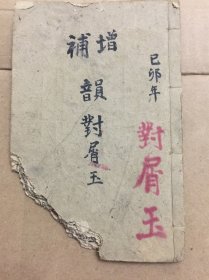 己卯年
對屑玉
增
補
韻對屑玉